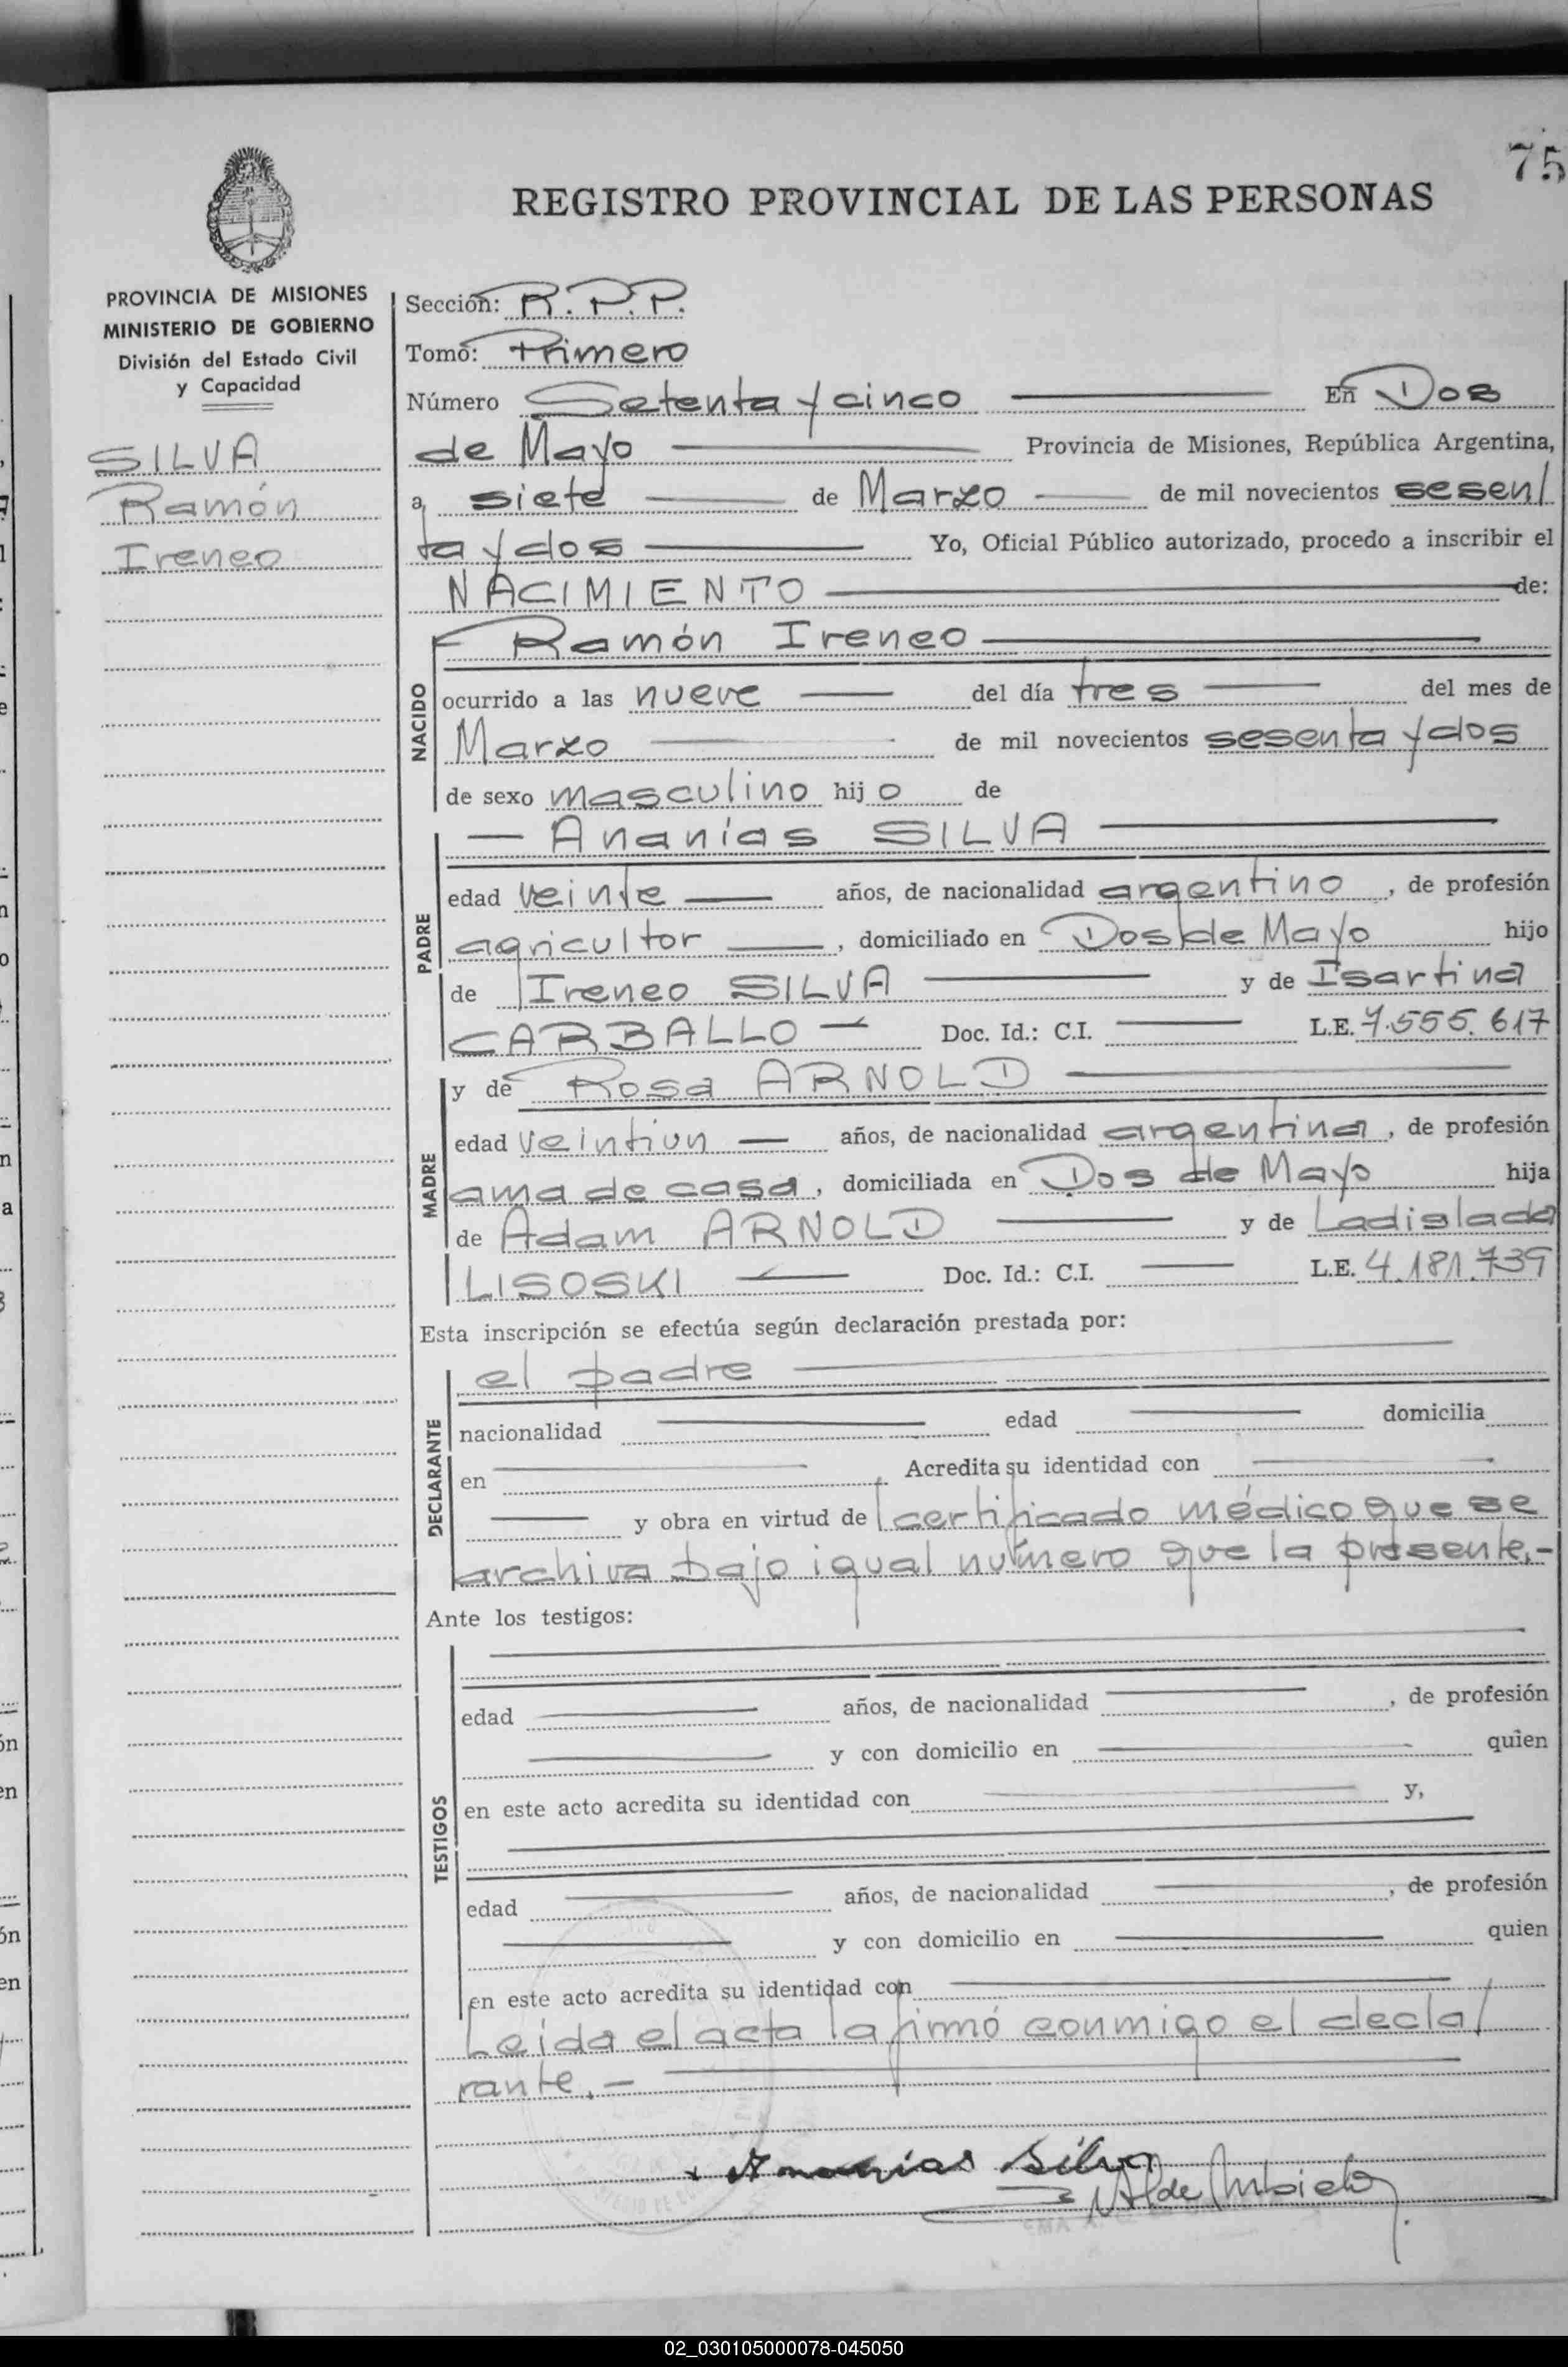 75
REGISTRO PROVINCIAL DE LAS PERSONAS
PROVINCIA DE MISIONES
MINISTERIO DE GOBIERNO
División del Estado Civil
y Capacidad
SILVA
Ramón
Ireneo
Sección: R.P.P.
Tomo: Primero
Número Setenta y cinco En Dos
de Mayo Provincia de Misiones, República Argentina,
a siete de Marzo de mil novecientos sesen/
ta y dos Yo, Oficial Público autorizado, procedo a inscribir el
NACIMIENTO de:
NACIDO
Ramón Ireneo
ocurrido a las nueve del día tres del mes de
Marzo de mil novecientos sesenta y dos
de sexo masculino hijo de
PADRE
— Ananías SILVA
edad veinte años, de nacionalidad argentino, de profesión
agricultor, domiciliado en Dos de Mayo hijo
de Ireneo SILVA y de Isartina
CARBALLO — Doc. Id.: C.I. L.E. 7.555.617
MADRE
y de Rosa ARNOLD
edad veintiun — años, de nacionalidad argentina, de profesión
ama de casa, domiciliada en Dos de Mayo hija
de Adam ARNOLD y de Ladislada
LISOSKI Doc. Id.: C.I. L.E. 4.181.739
Esta inscripción se efectúa según declaración prestada por:
DECLARANTE
el padre
nacionalidad edad domicilia
en Acredita su identidad con
y obra en virtud de certificado médico que se
archiva bajo igual número que la presente.-
Ante los testigos:
TESTIGOS
edad años, de nacionalidad, de profesión
y con domicilio en quien
en este acto acredita su identidad con y,
edad años, de nacionalidad, de profesión
y con domicilio en quien
en este acto acredita su identidad con
Leída el acta la firmó conmigo el decla/
rante.-
Ananias Silva
02_030105000078-045050